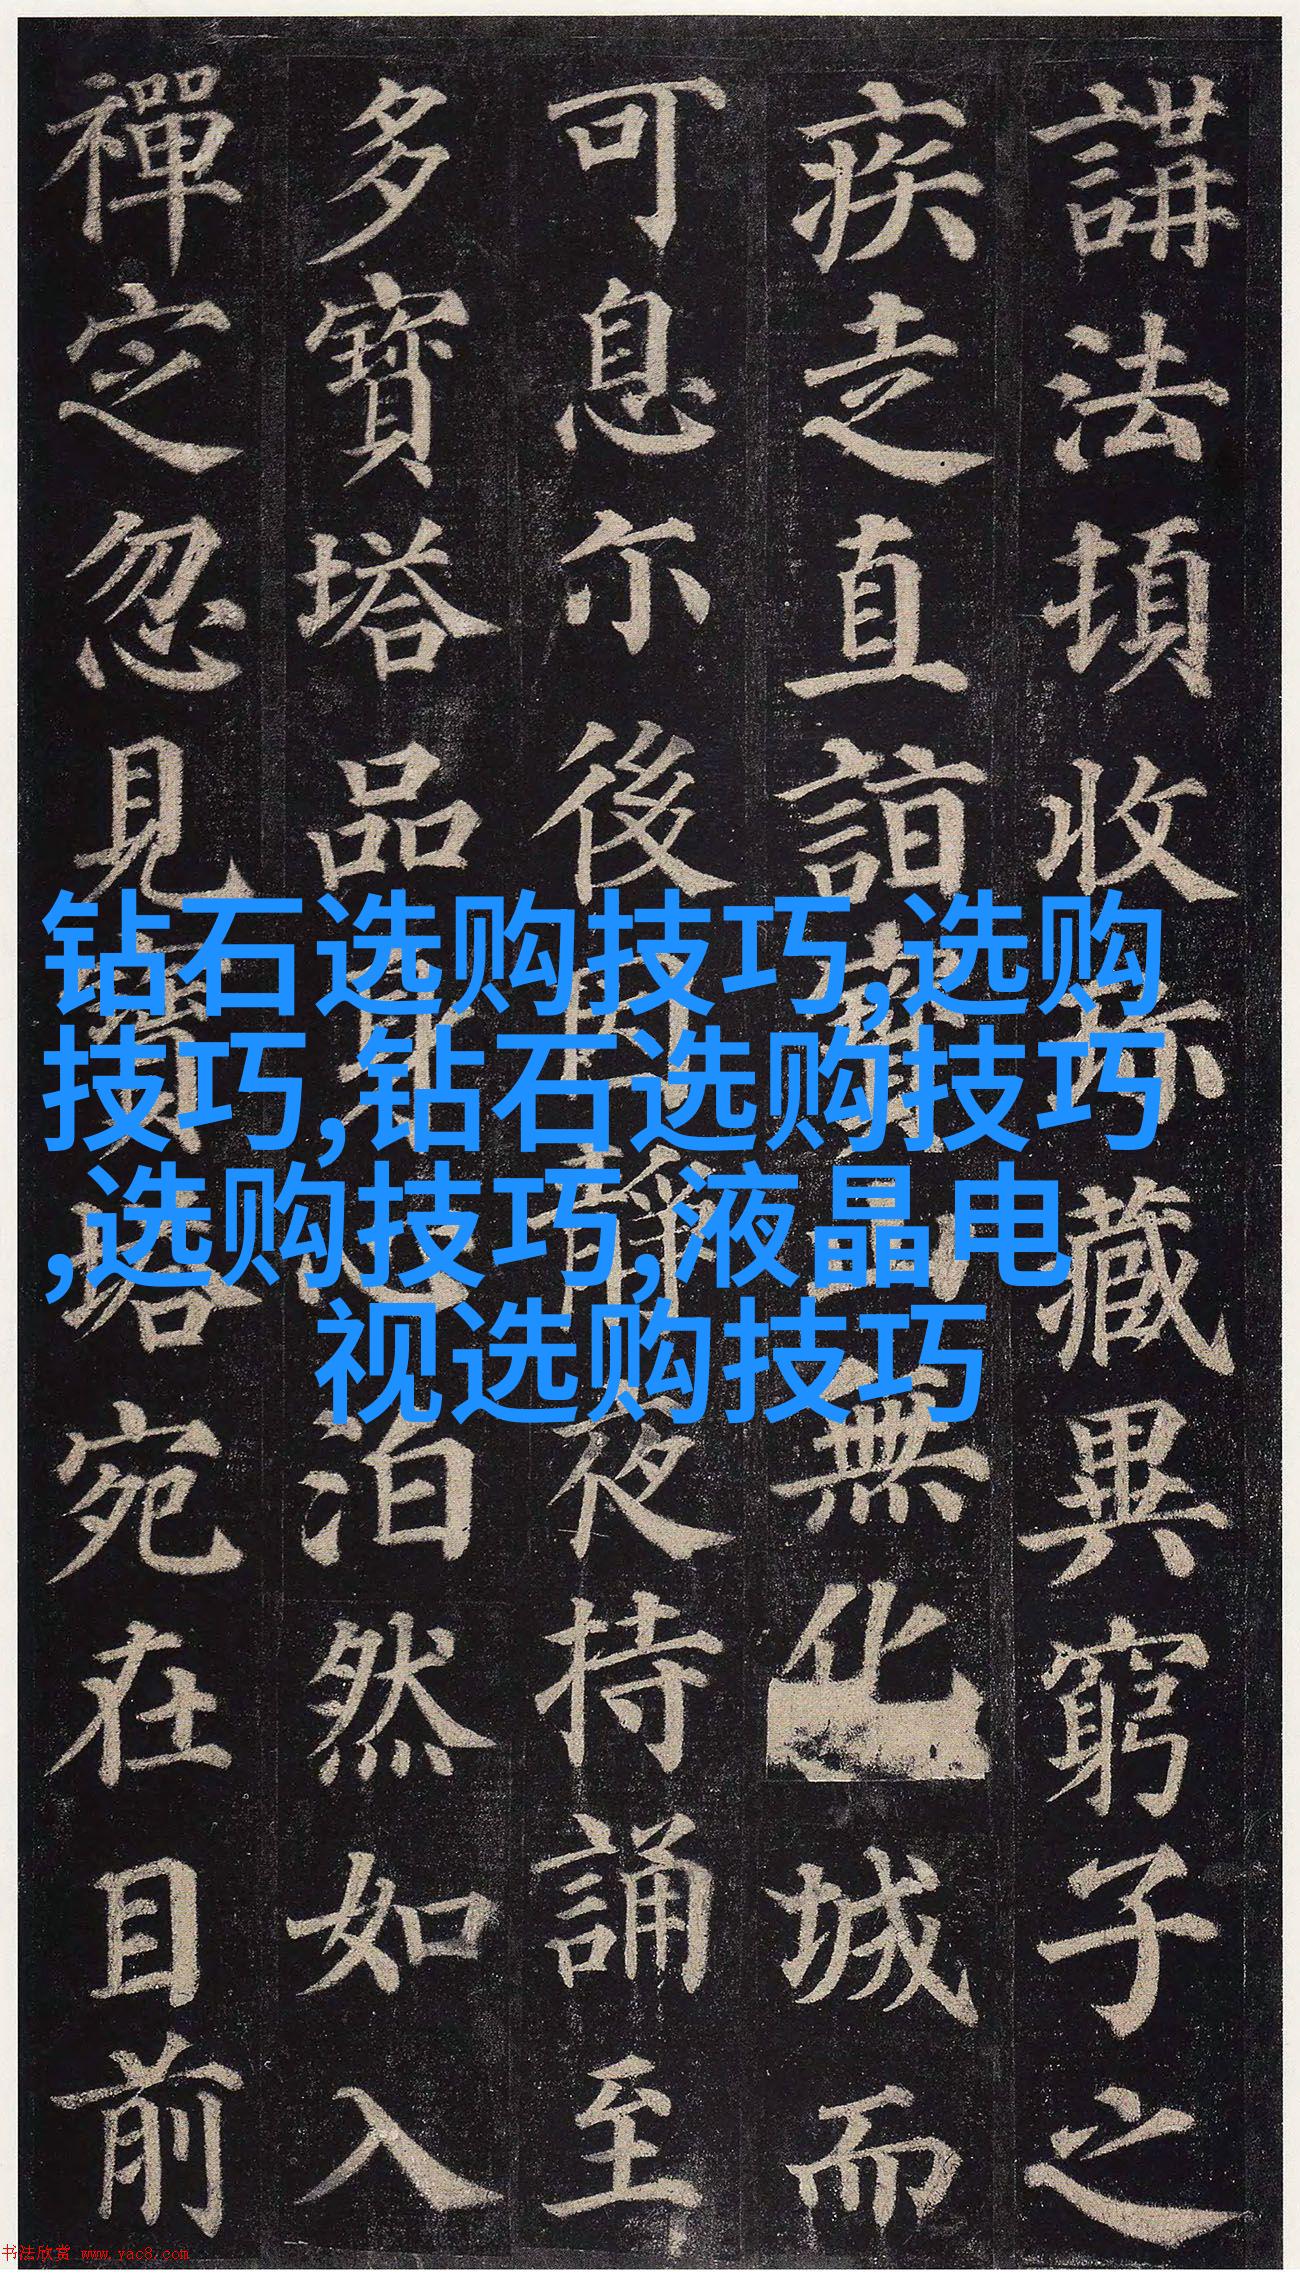 講法頓收珎藏異窮子之
疾走直詣寶山無化城而
可息尒後因靜夜持誦至
多寶塔品身心泊然如入
禪定忽見寶塔宛在目前
钻石选购技巧,选购
技巧,钻石选购技巧
,选购技巧,液晶电
视选购技巧
书法欣赏 www.yac8.com